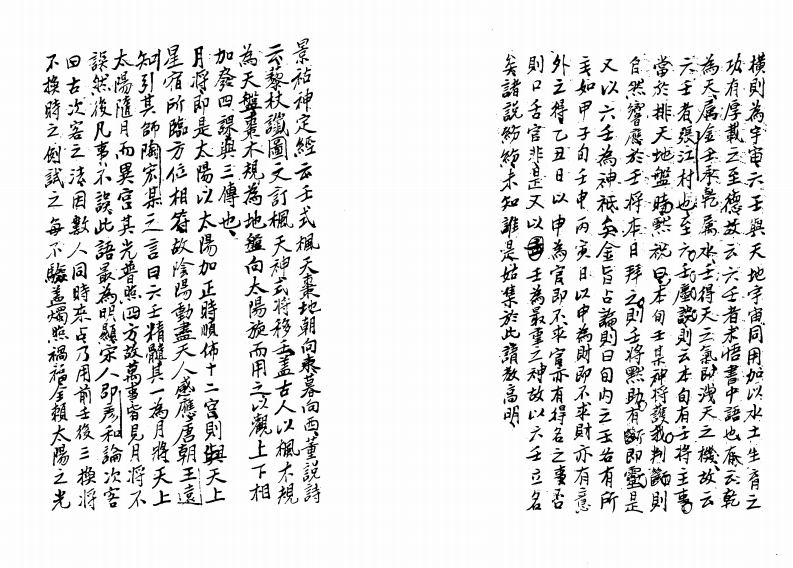 橫則為宇宙六壬與天地宇宙同用加以水土生育之
功有厚載之至德故云六壬者求悟書中語也
為天属金壬承乾属水壬得天之氣即洩天之機故云
六壬者張江村也至六壬戲說則云本旬有壬將主事
當於排天地盤時默祝曰本旬壬某神將護我判斷則
自然響應於壬將本日拜之則壬將默助有斷即靈是
又以六壬為神祗矣金旨占論則曰旬內之壬若有所
主如甲子旬壬申丙寅日以申為財即不求財亦有意
外之得乙丑日以申為官即不求官亦有得名之事否
則口舌官非是又以壬為最重之神故以六壬立名
矣諸說紛紛未知誰是姑集於此請教高明
景祐神定經云壬式楓天棗地朝向東暮向西董說詩
云藜杖讖圖文訂楓天神式將移壬盖古人以楓木規
為天盤棗木規為地盤向太陽旋而用之以觀上下相
加發四課與三傳也
月將即是太陽以太陽加正時順佈十二宮則與天上
星宿所臨方位相符故陰陽動盡天人感應唐朝王遠
知引其師陶宏某之言曰六壬精髓其一為月將天上
太陽隨月而異宮其光普照四方故萬事皆見月將不
誤然後凡事不誤此語最為明顯宋人邵彥和論次客
曰古次客之法因數人同時來占乃用前壬後三換將
不換時之例試之每不驗盖燭照禍福全賴太陽之光